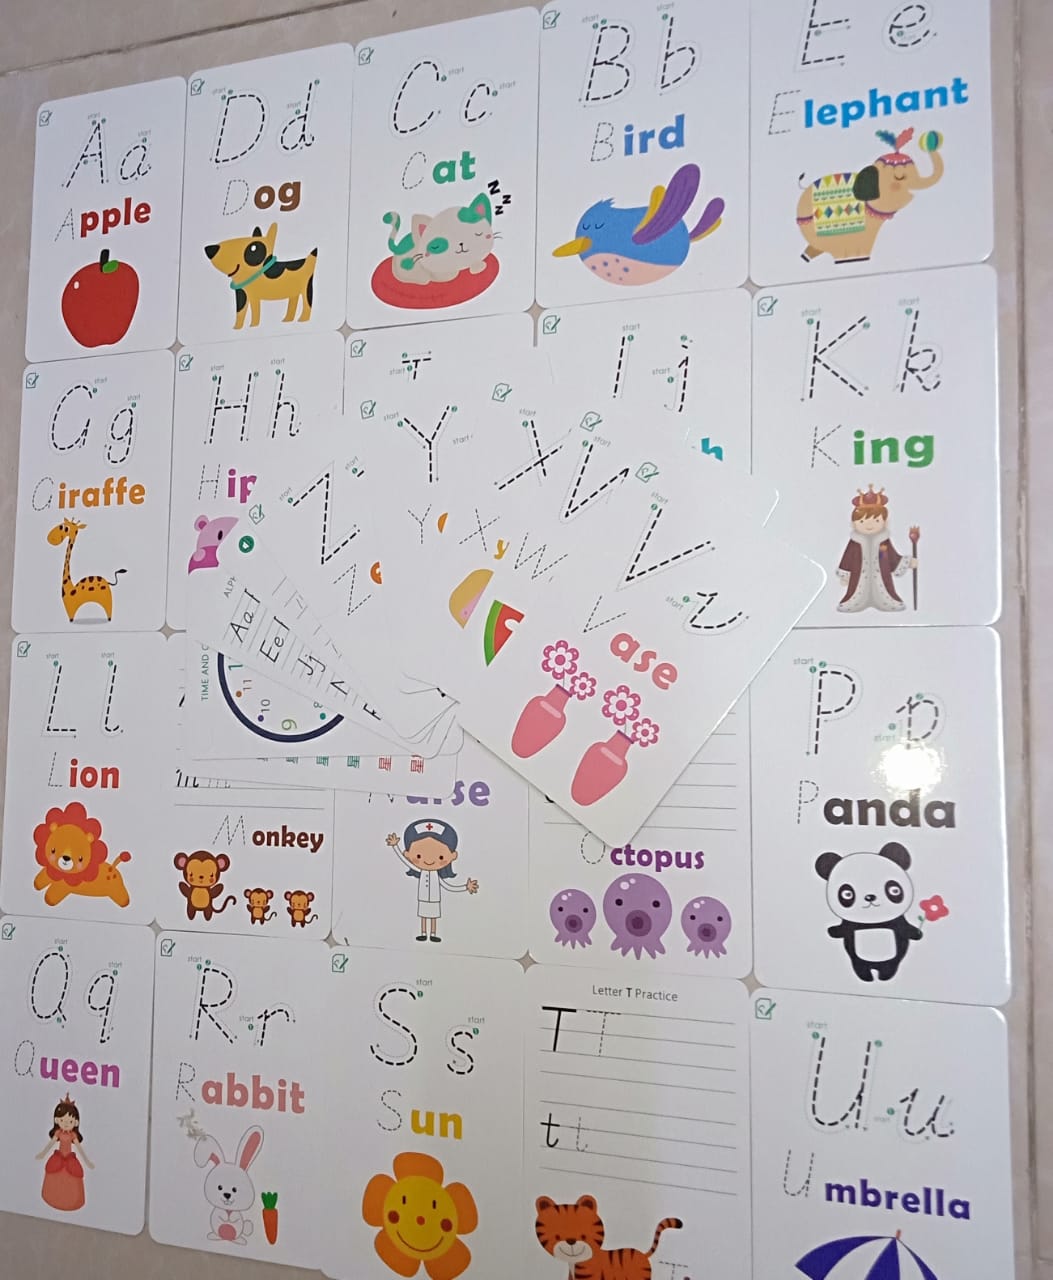 start
start
A a
Apple
start
start
D d
Dog
start
start
C c
Cat
z
z z
start
start
B b
Bird
E e
start
Elephant
start
start
G g
Giraffe
start
start
H h
Hip
start
T
start
start
I j
h
start
start
K k
King
start
start
Y
Y
start
X
X
y
start
Z
Z
start
W
start
start
V v
Vase
ALPH
A a
E e
J j
TIME AND
11
10
9
8
start
start
L l
Lion
m m m
Monkey
Nurse
Octopus
start
start
P p
Panda
start
start
Q q
Queen
start
start
R r
Rabbit
start
start
S s
Sun
Letter T Practice
T T
t t
T
start
start
U u
Umbrella